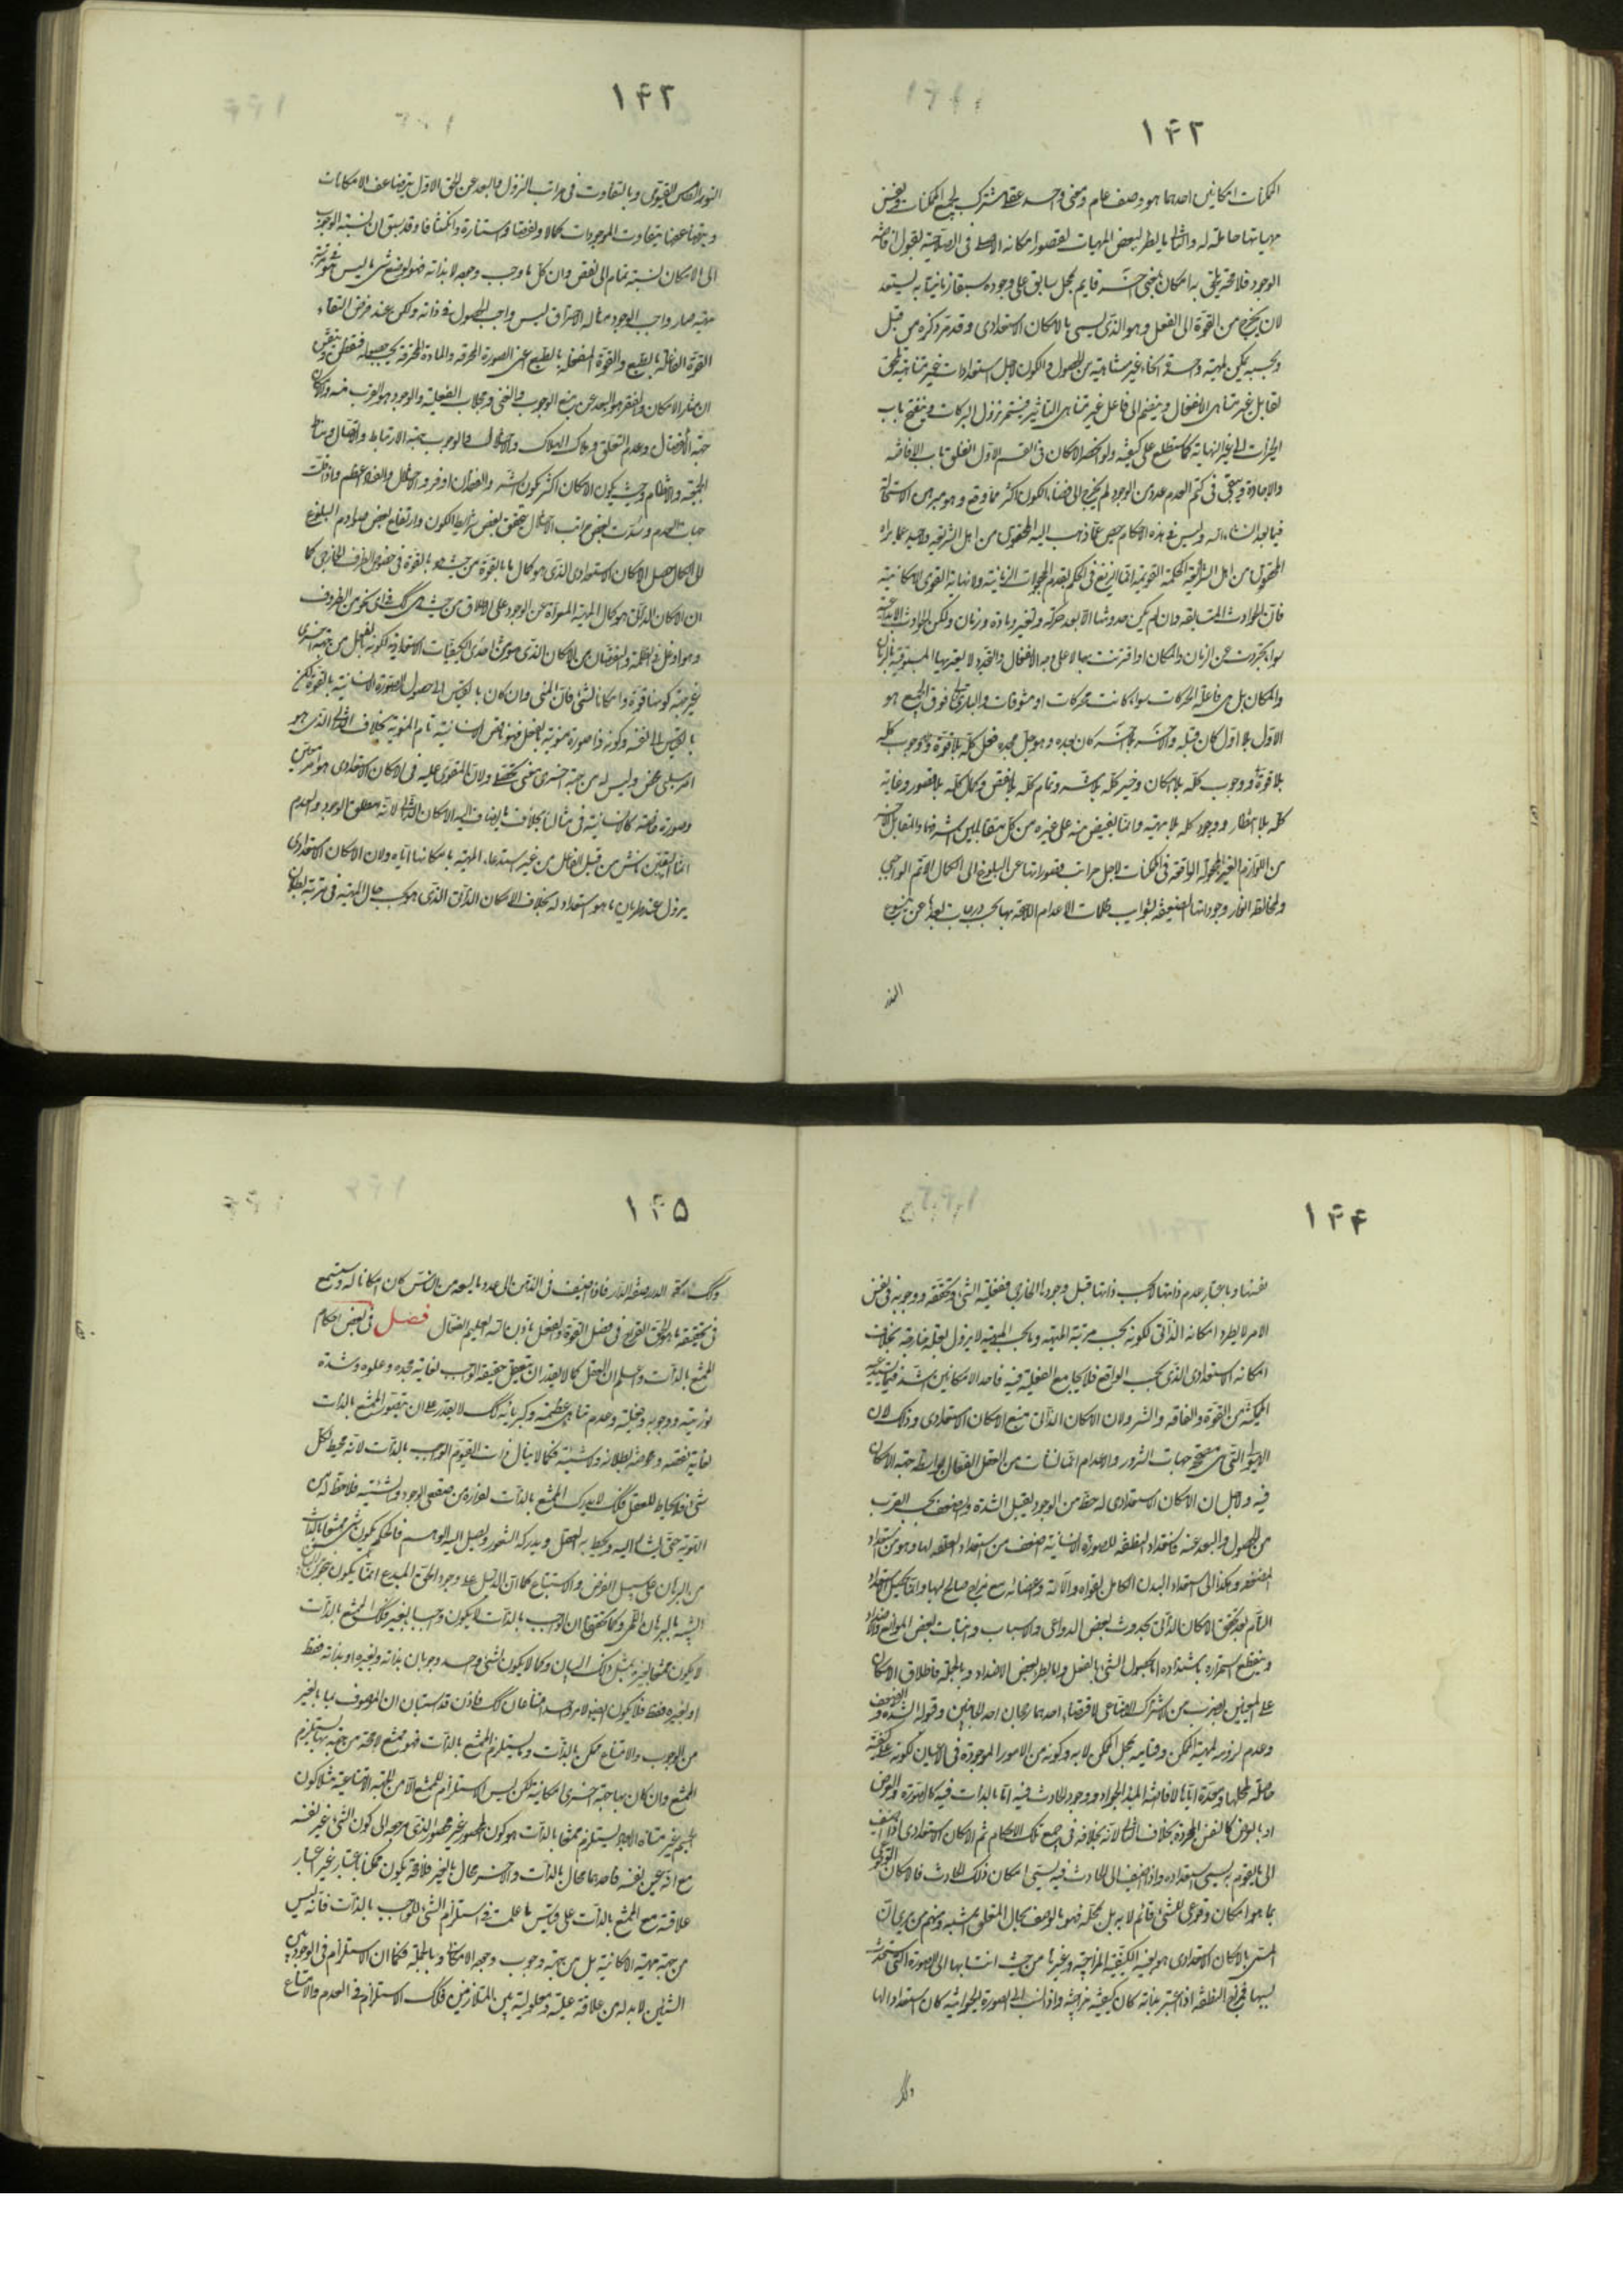 ١۴٢
الممكنات امكانين احدهما هو وصف عام ومعنى واحد عقلى مشترك لجميع الممكنات ونفس
مهياتها حاملة له والثانى ما يطرء لبعض المهيات لقصور امكانه الاصلى فى الصلاحية لقبول افاضة
الوجود فلا محة يلحق به امكان بمعنى آخر قايم بمحل سابق على وجوده سبقا زمانيا به يستعد
لان يخرج من القوة الى الفعل وهو الذى يسمى بالامكان الاستعدادى وقد مر ذكره من قبل
وبحسبه يمكن لمهية واحدة انحاء غير متناهية من الحصول والكون لاجل استعدادات غير متناهية يلحق
لقابل غير متناهى الانفعال وينضم الى فاعل غير متناهى التاثير فيستمر نزول البركات وينفتح باب
الخيرات الى غير النهاية كما ستطلع على كيفيته ولو انحصر الامكان فى القسم الاول لانغلق باب الافاضة
والاجادة وبقى فى كتم العدم عدد من الوجود لم يخرج الى فضاء الكون اكثر مما وقع وهو مبرهن الاستحالة
فيما بعد انشاء الله وليس فى هذه الاحكام حيص عما ذهب اليه المحققون من اهل الشريعة وحيد عما يراه
المحققون من اهل الحكمة القويمة انما الزيغ فى الحكم بقدم المجعولات الزمانية ولا نهاية القوى الامكانية
فان الحوادث المتسابقة وان لم يكن حدوثها الا بعد حركة وتغير ومادة وزمان ولكن الحوادث الابداعية
سواء تجردت عن الزمان والمكان او اقترنت بهما لا على وجه الانفعال والتجدد لا يعتريها المسبوقية بالزمان
والمكان بل هى فاعلة الحركات سواء كانت محركات او مشوقات والبارى تعالى فوق الجميع هو
الاول بلا اول كان قبله والآخر بلا آخر كان بعده وهو جل مجده فعل كله بلا قوة ووجوب كله
بلا قوة ووجوب كله بلا امكان وخير كله بلا شر وتمام كله بلا نقص وكمال كله بلا قصور وغاية
كله بلا انتظار ووجود كله بلا مهية وانما يفيض منه على غيره من كل متقابلين اشرفهما والمقابل الآخر
من اللوازم الغير المجعولة الواقعة فى الممكنات لاجل مراتب قصوراتها عن البلوغ الى الكمال الاتم الواجبى
ولمخالطة انوار وجوداتها الضعيفة بشوايب ظلمات الاعدام اللاحقة بها بحسب درجات بعدها عن ينبوع
النور
١۴٣
النور الطمس القيومى وبالتفاوت فى مراتب النزول والبعد عن الحق الاول يتضاعف الامكانات
وبتضاعفها يتفاوت الموجودات كمالا ونقصا واستنارة وانكسافا وقد سبق ان نسبة الوجوب
الى الامكان نسبة تمام الى نقص وان كل ما وجب وجوده لا بذاته فهو لوضع شئ ما ليس هو
صار واجب الوجود مثاله الاحتراق ليس واجب الحصول فى ذاته ولكن عند فرض التقاء
القوة الفاعلة بالطبع والقوة المنفعلة بالطبع اعنى الصورة المحرقة والمادة المحترقة يجب حصوله فتفطن وتيقن
ان مثار الامكان والفقر هو البعد عن منبع الوجوب والغنى ومجلاب الفعلية والوجود هو القرب منه والامكان
جهة الانفصال وعدم التعلق وملاك الهلاك والاختلال والوجوب جهة الارتباط والاتصال ومناط
الجمعية والانتظام وحيث يكون الامكان اكثر يكون الشر والفقدان اوفر والاختلال والفساد اعظم واذا قلت
جهات العدم وسددت بعض مراتب الاختلال بتحقق بعض شرايط الكون وارتفاع بعض موانع البلوغ
الى الكمال حصل الامكان الاستعدادى الذى هو كمال ما بالقوة من حيث هو بالقوة فى خصوص الظرف الخارجى كما
ان الامكان الذاتى هو كمال المهية المعراة عن الوجود على الاطلاق من حيث هى كك فى اى نحو من الظروف
وهو ادخل فى الظلمة والنقصان من الامكان الذى هو من احدى الكيفيات الاستعدادية لكونه بالفعل من جهة اخرى
غير جهة كونها قوة وامكانا لشئ فان المنى وان كان بالقياس الى حصول الصورة الانسانية له بالقوة لكن
بالقياس الى نفسه وكونه ذا صورة منوية بالفعل فهو ناقص الانسانية تام المنوية بخلاف الذاتى الذى هو
امر سلبى محض وليس له من جهة اخرى معنى تحصلى ولان المقوى عليه فى الامكان الاستعدادى هو امر معين
وصورة خاصة كالانسانية فى مثالنا بخلاف ما يضاف اليه الامكان الذاتى لانه مطلق الوجود والعدم
انما التعين ناش من قبل الفاعل من غير استدعاء المهية بامكانها اياه ولان الامكان الاستعدادى
يزول عند طريان ما هو استعداد له بخلاف الامكان الذاتى الذى هو بحسب حال المهية فى مرتبة بطلان
١۴۴
نفسها وباعتبار عدم ذاتها بحسب ذاتها قبل وجودها الخارجى ففعلية الشئ وتحققه ووجوبه فى نفس
الامر لا يطرد امكانه الذاتى لكونه بحسب مرتبة المهية وما بحسب المهية لا يزول بعلة خارجة بخلاف
امكانه الاستعدادى الذى بحسب الواقع فلا يجامع الفعلية فيه فاحد الامكانين اشد فيما يستدعيه
الممكنية من القوة والفاقة والشر ولان الامكان الذاتى منبع الامكان الاستعدادى وذلك لان
الهيولى التى هى مصححة جهات الشرور والاعدام انما نشات من العقل الفعال بواسطة جهة الامكان
فيه ولاجل ان الامكان الاستعدادى له حظ من الوجود يقبل الشدة والضعف بحسب القرب
من الحصول والبعد عنه فاستعداد النطفة للصورة الانسانية اضعف من استعداد العلقة لها وهو من استعداد
المضغة وهكذا الى استعداد البدن الكامل بقواه وآلاته واعضائه مع مزاج صالح لها وانما يحصل الاستعداد
التام بعد تحقق الامكان الذاتى بحدوث بعض الدواعى والاسباب وانبتات بعض الموانع والاضداد
وينقطع استمراره باشتداده اما بحصول الشئ بالفعل واما بطرو بعض الاضداد وبالجملة فاطلاق الامكان
على المعنيين بضرب من الاشتراك الصناعى لاقتضاء احدهما رجحان احد الجانبين وقبوله الشدة والضعف
وعدم لزومه لمهية الممكن وقيامه بمحل الممكن لا به وكونه من الامور الموجودة فى الاعيان لكونه كيفية
حاصلة لمحلها معدة اياها لافاضة المبدء الجواد وجود الحادث فيه اما بالذات فيه كالصورة والعرض
او بالعرض كالنفس المجردة بخلاف الذاتى لانه بخلافه فى جميع تلك الاحكام ثم الامكان الاستعدادى اذا اضيف
الى ما يقوم به يسمى استعداده واذا اضيف الى الحادث فيه يسمى امكان ذلك الحادث فالامكان الوقوعى
بما هو امكان وقوعى للشئ قائم لا به بل بمحله فهو بالوصف بحال المتعلق اشبه ومنهم من يرى ان
المسمى بالامكان الاستعدادى هو بعينه الكيفية المزاجية وغيرها من حيث انتسابها الى الصورة التى ستحدث
بسببها فمزاج النطفة اذا اعتبر بذاته كان كيفية مزاجية واذا نسب الى الصورة الحيوانية كان استعدادا لها
وكك
١۴۵
وكك صحة الدار صفة الدار فاذا اضيف فى الذهن الى عدد ما يسعه من الناس كان امكانا له وستسمع
فى تحقيقه ما هو الحق القراح فى فصل القوة والفعل باذن الله العليم الفعال فصل فى بعض احكام
الممتنع بالذات واعلم ان العقل كما لا يقدر ان يتعقل حقيقة الواجب لغاية مجده وعلوه وشدة
نوريته ووجوبه وفعليته وعدم تناهى عظمته وكبريائه كك لا يقدر على ان يتصور الممتنع بالذات
لغاية نقصه ومحوضة بطلانه ولاشيئيته فكما لا ينال ذات القيوم الواجب بالذات لانه محيط بكل
شئ فلا يحاط للعقل فكك لا يدرك الممتنع بالذات لفراره من صقع الوجود والشيئية فلا حظ له من
الهوية حتى يشار اليه ويحيط به العقل ويدركه الشعور ويصل اليه الوهم فالحكم بكون شئ ممتنعا بالذات
من البرهان على سبيل العرض والاستتباع كما ان الدليل على وجود الحق المبدع انما يكون بنحو من البيان
الشبيه بالبرهان اللمى وكما تحقق ان الواجب بالذات لا يكون واجبا بغيره فكك الممتنع بالذات
لا يكون ممتنعا بغيره بمثل ذلك البيان وكما لا يكون لشئ واحد وجوبان بذاته وبغيره او بذاته فقط
او بغيره فقط فلا يكون لامر واحد امتناعان كك فاذن قد استبان ان الموصوف بما بالغير
من الوجوب والامتناع ممكن بالذات وما يستلزم الممتنع بالذات فهو ممتنع لامحة من جهة بها يستلزم
الممتنع وان كان بها جهة اخرى امكانية لكن ليس الاستلزام للممتنع الا من الجهة الامتناعية مثلا كون
الجسم غير متناه الابعاد يستلزم ممتنعا بالذات هو كون المحصور غير محصور الذى مرجعه الى كون الشئ غير نفسه
مع انه عين نفسه فاحدهما محال بالذات والآخر محال بالغير فلا محة يكون ممكنا باعتبار غير اعتبار
علاقته مع الممتنع بالذات على قياس ما علمت فى استلزام الشئ للواجب بالذات فانه ليس
من جهة مهيته الامكانية بل من جهة وجوب وجوده الامكانى وبالجملة فكما ان الاستلزام فى الوجود بين
الشيئين لا بد له من علاقة علية ومعلولية بين المتلازمين فكك الاستلزام فى العدم والامتناع